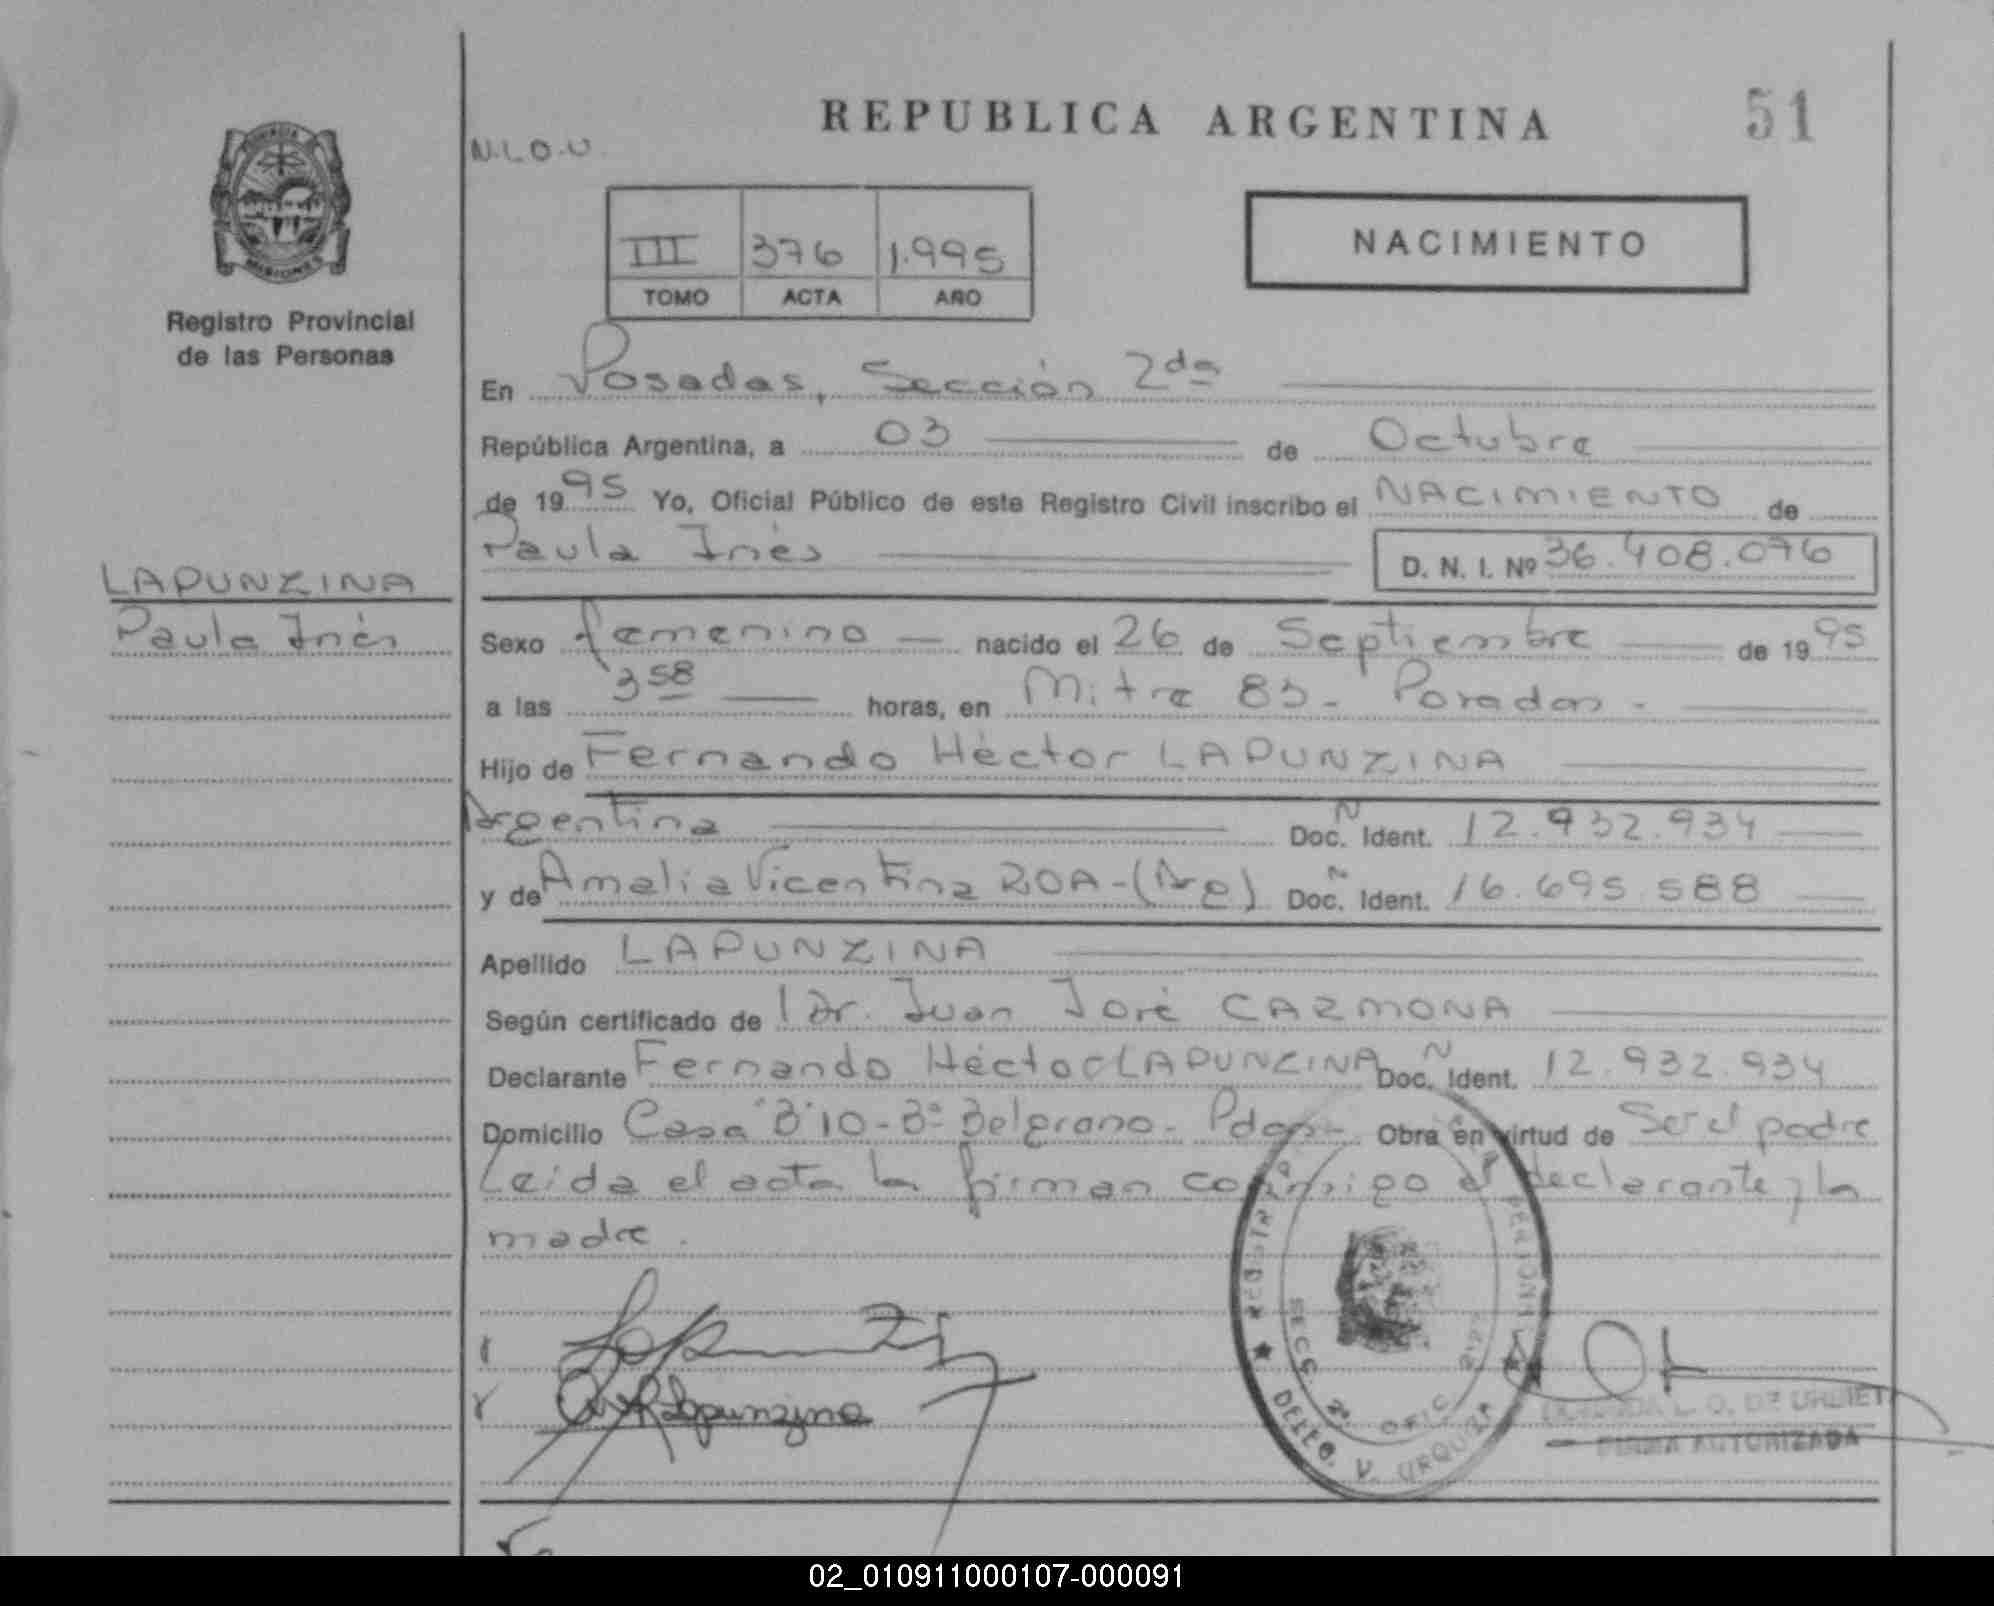 REPUBLICA ARGENTINA
51
N.L.O.U.
III 376 1.995
TOMO ACTA AÑO
NACIMIENTO
MISIONES
Registro Provincial
de las Personas
En Posadas, Sección 2da
República Argentina, a 03 de Octubre
de 1995 Yo, Oficial Público de este Registro Civil inscribo el NACIMIENTO de
Paula Inés D. N. I. Nº 36.408.076
LAPUNZINA
Paula Inés
Sexo femenino nacido el 26 de Septiembre de 1995
a las 3 58 horas, en Mitre 83 - Posadas -
Hijo de Fernando Héctor LAPUNZINA
Argentina Doc. N Ident. 12.932.934
y de Amalia Vicentina ROA - (Arg) Doc. N Ident. 16.695.588
Apellido LAPUNZINA
Según certificado de l Dr. Juan José CARMONA
Declarante Fernando Héctor LAPUNZINA Doc. N Ident. 12.932.934
Domicilio Casa "B" 10 - Bº Belgrano - Pdas - Obra en virtud de Ser el padre
Leída el acta la firman conmigo el declarante y la
madre.
Lapunzina
REGISTRO PERSONAS
SECC 2ª OFIC.
DELEG. V. URQUIZA
L. O. DE URBIETA
FIRMA AUTORIZADA
02_010911000107-000091